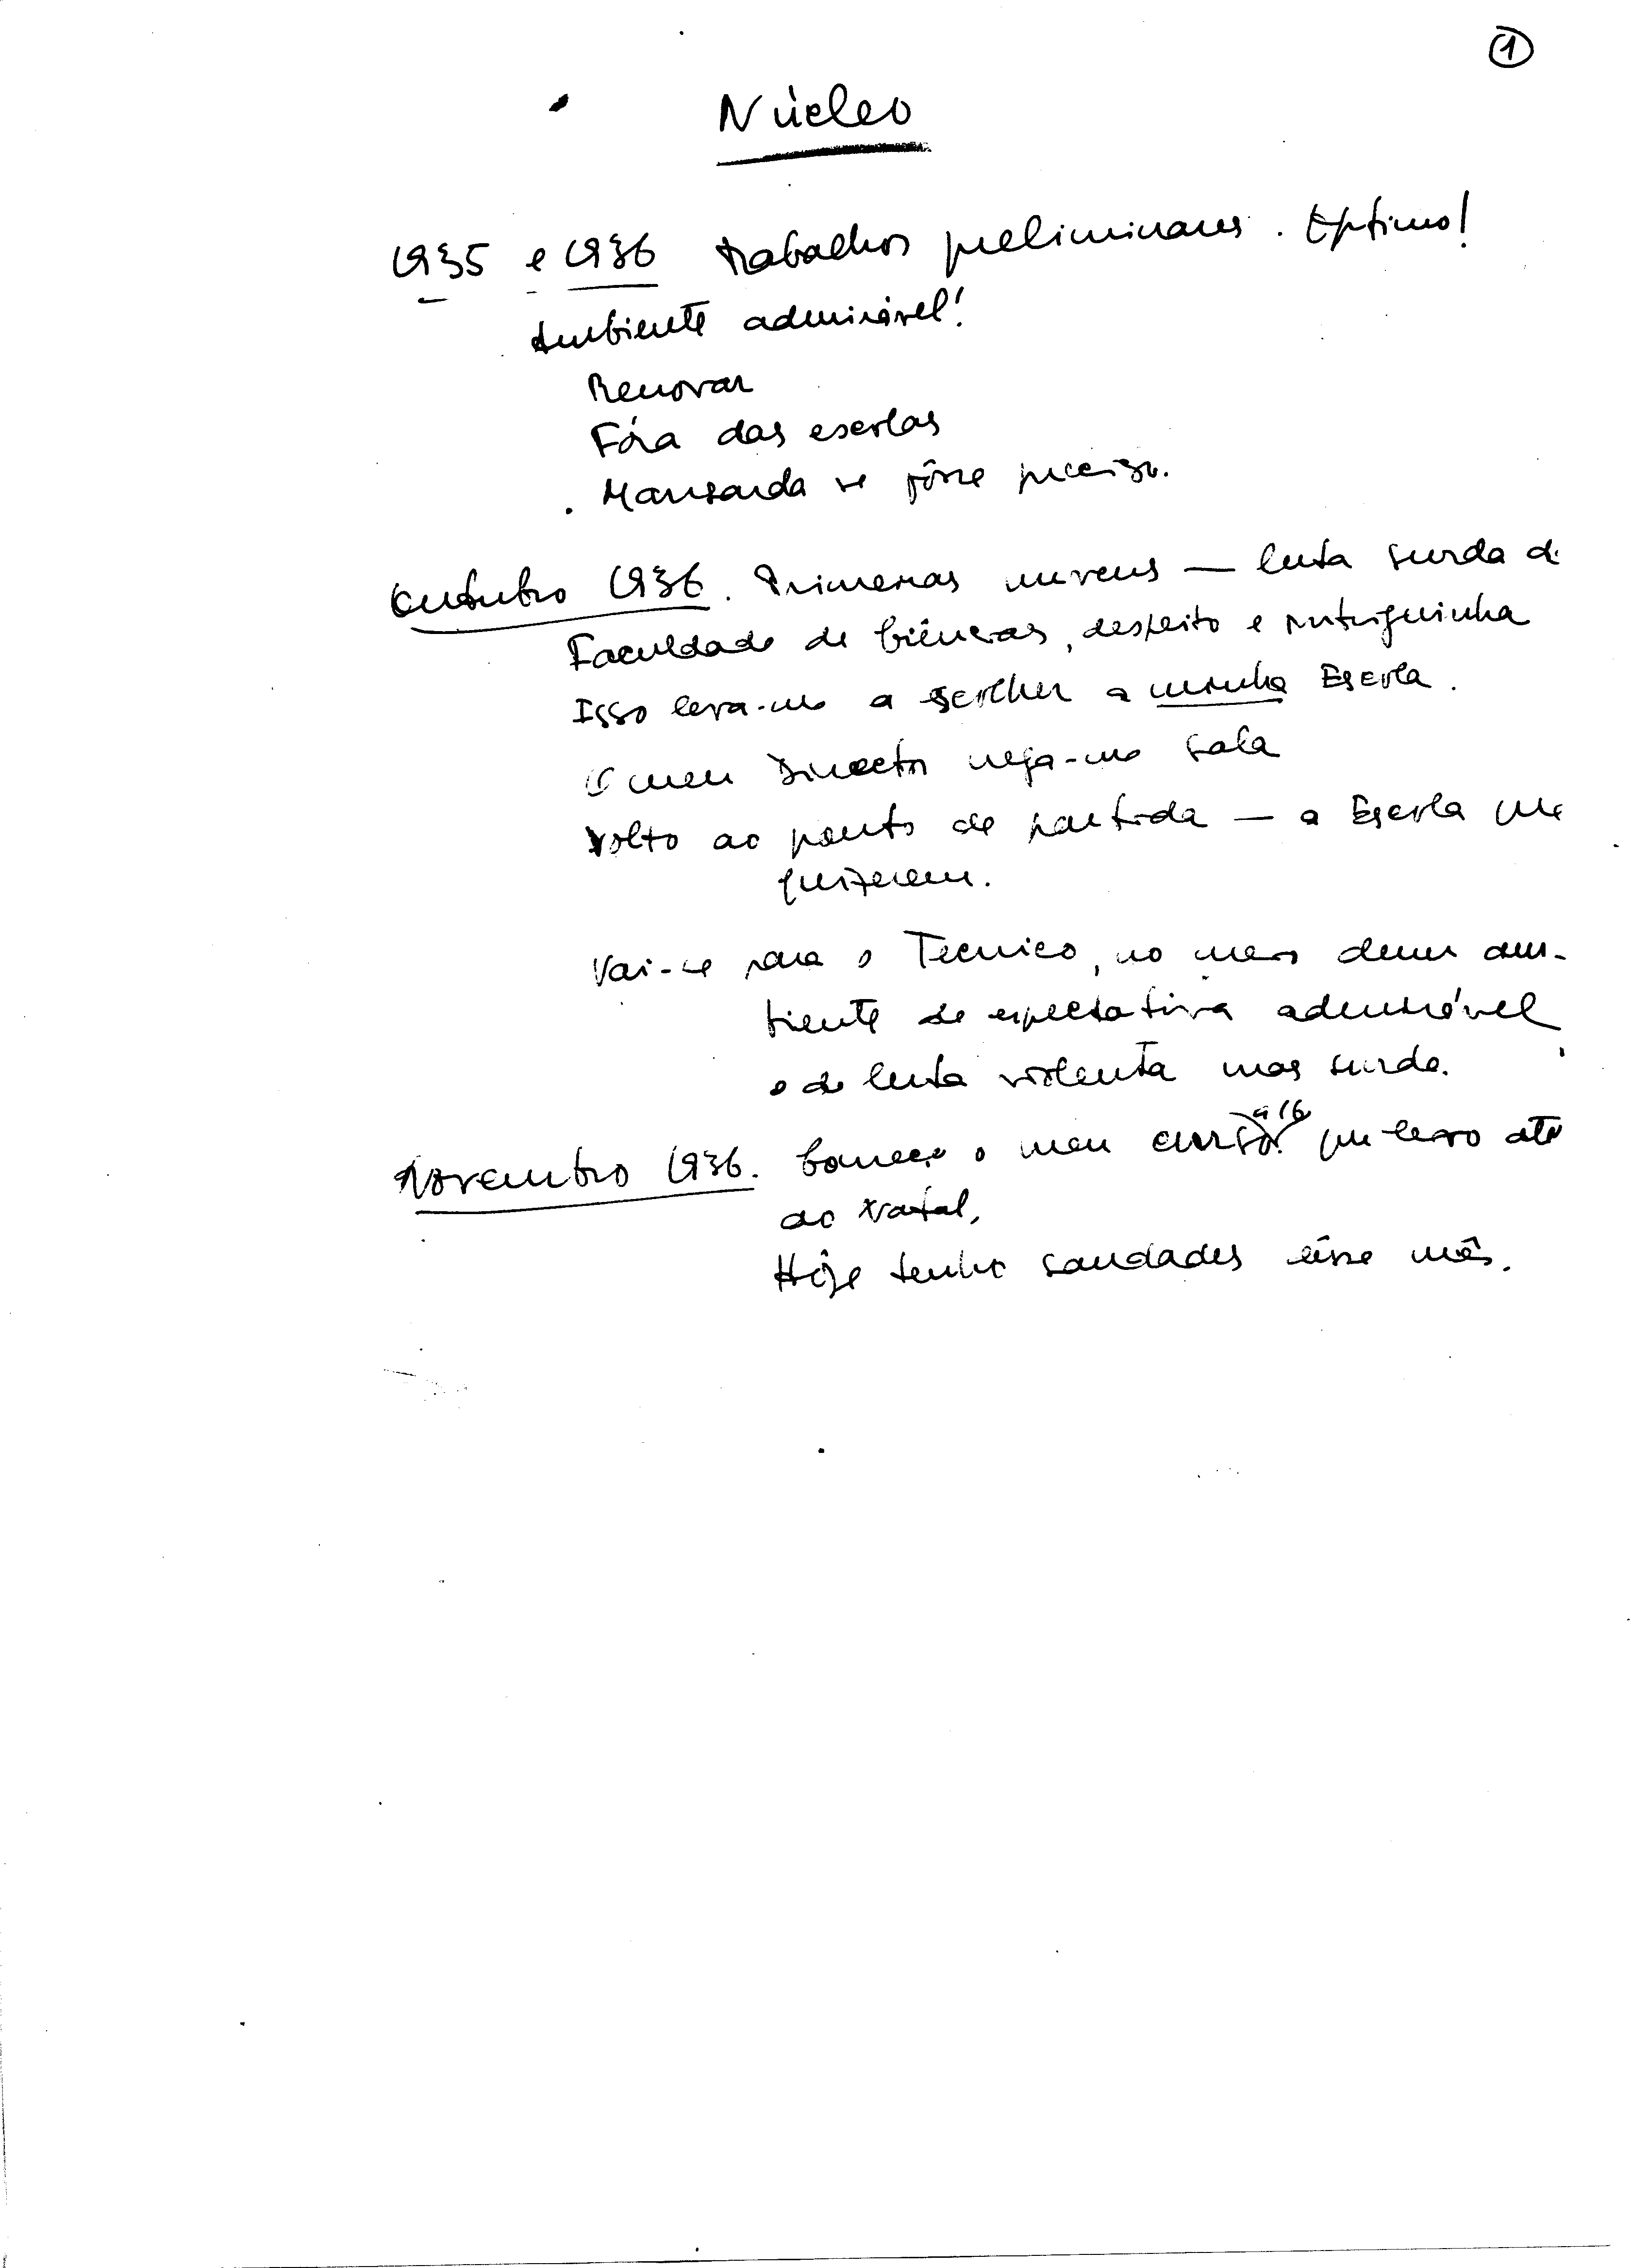 ①
Núcleo
1935 e 1936 Trabalhos preliminares. Optimo!
Ambiente admirável!
Renovar
Fóra das escolas
Mansarda se fôsse preciso.
Outubro 1936. Primeiras nuvens — luta surda da
Faculdade de Ciências, despeito e intriguinha
Isso leva-me a escolher a minha Escola.
O meu Director nega-me sala
Volto ao ponto de partida — a Escola que
quizerem.
Vai-se para o Tecnico, no meio dum am-
biente de espectativa admirável
e de luta violenta mas surda.
Novembro 1936. Começo o meu curso a 16 que levo até
ao Natal.
Hoje tenho saudades êsse mês.